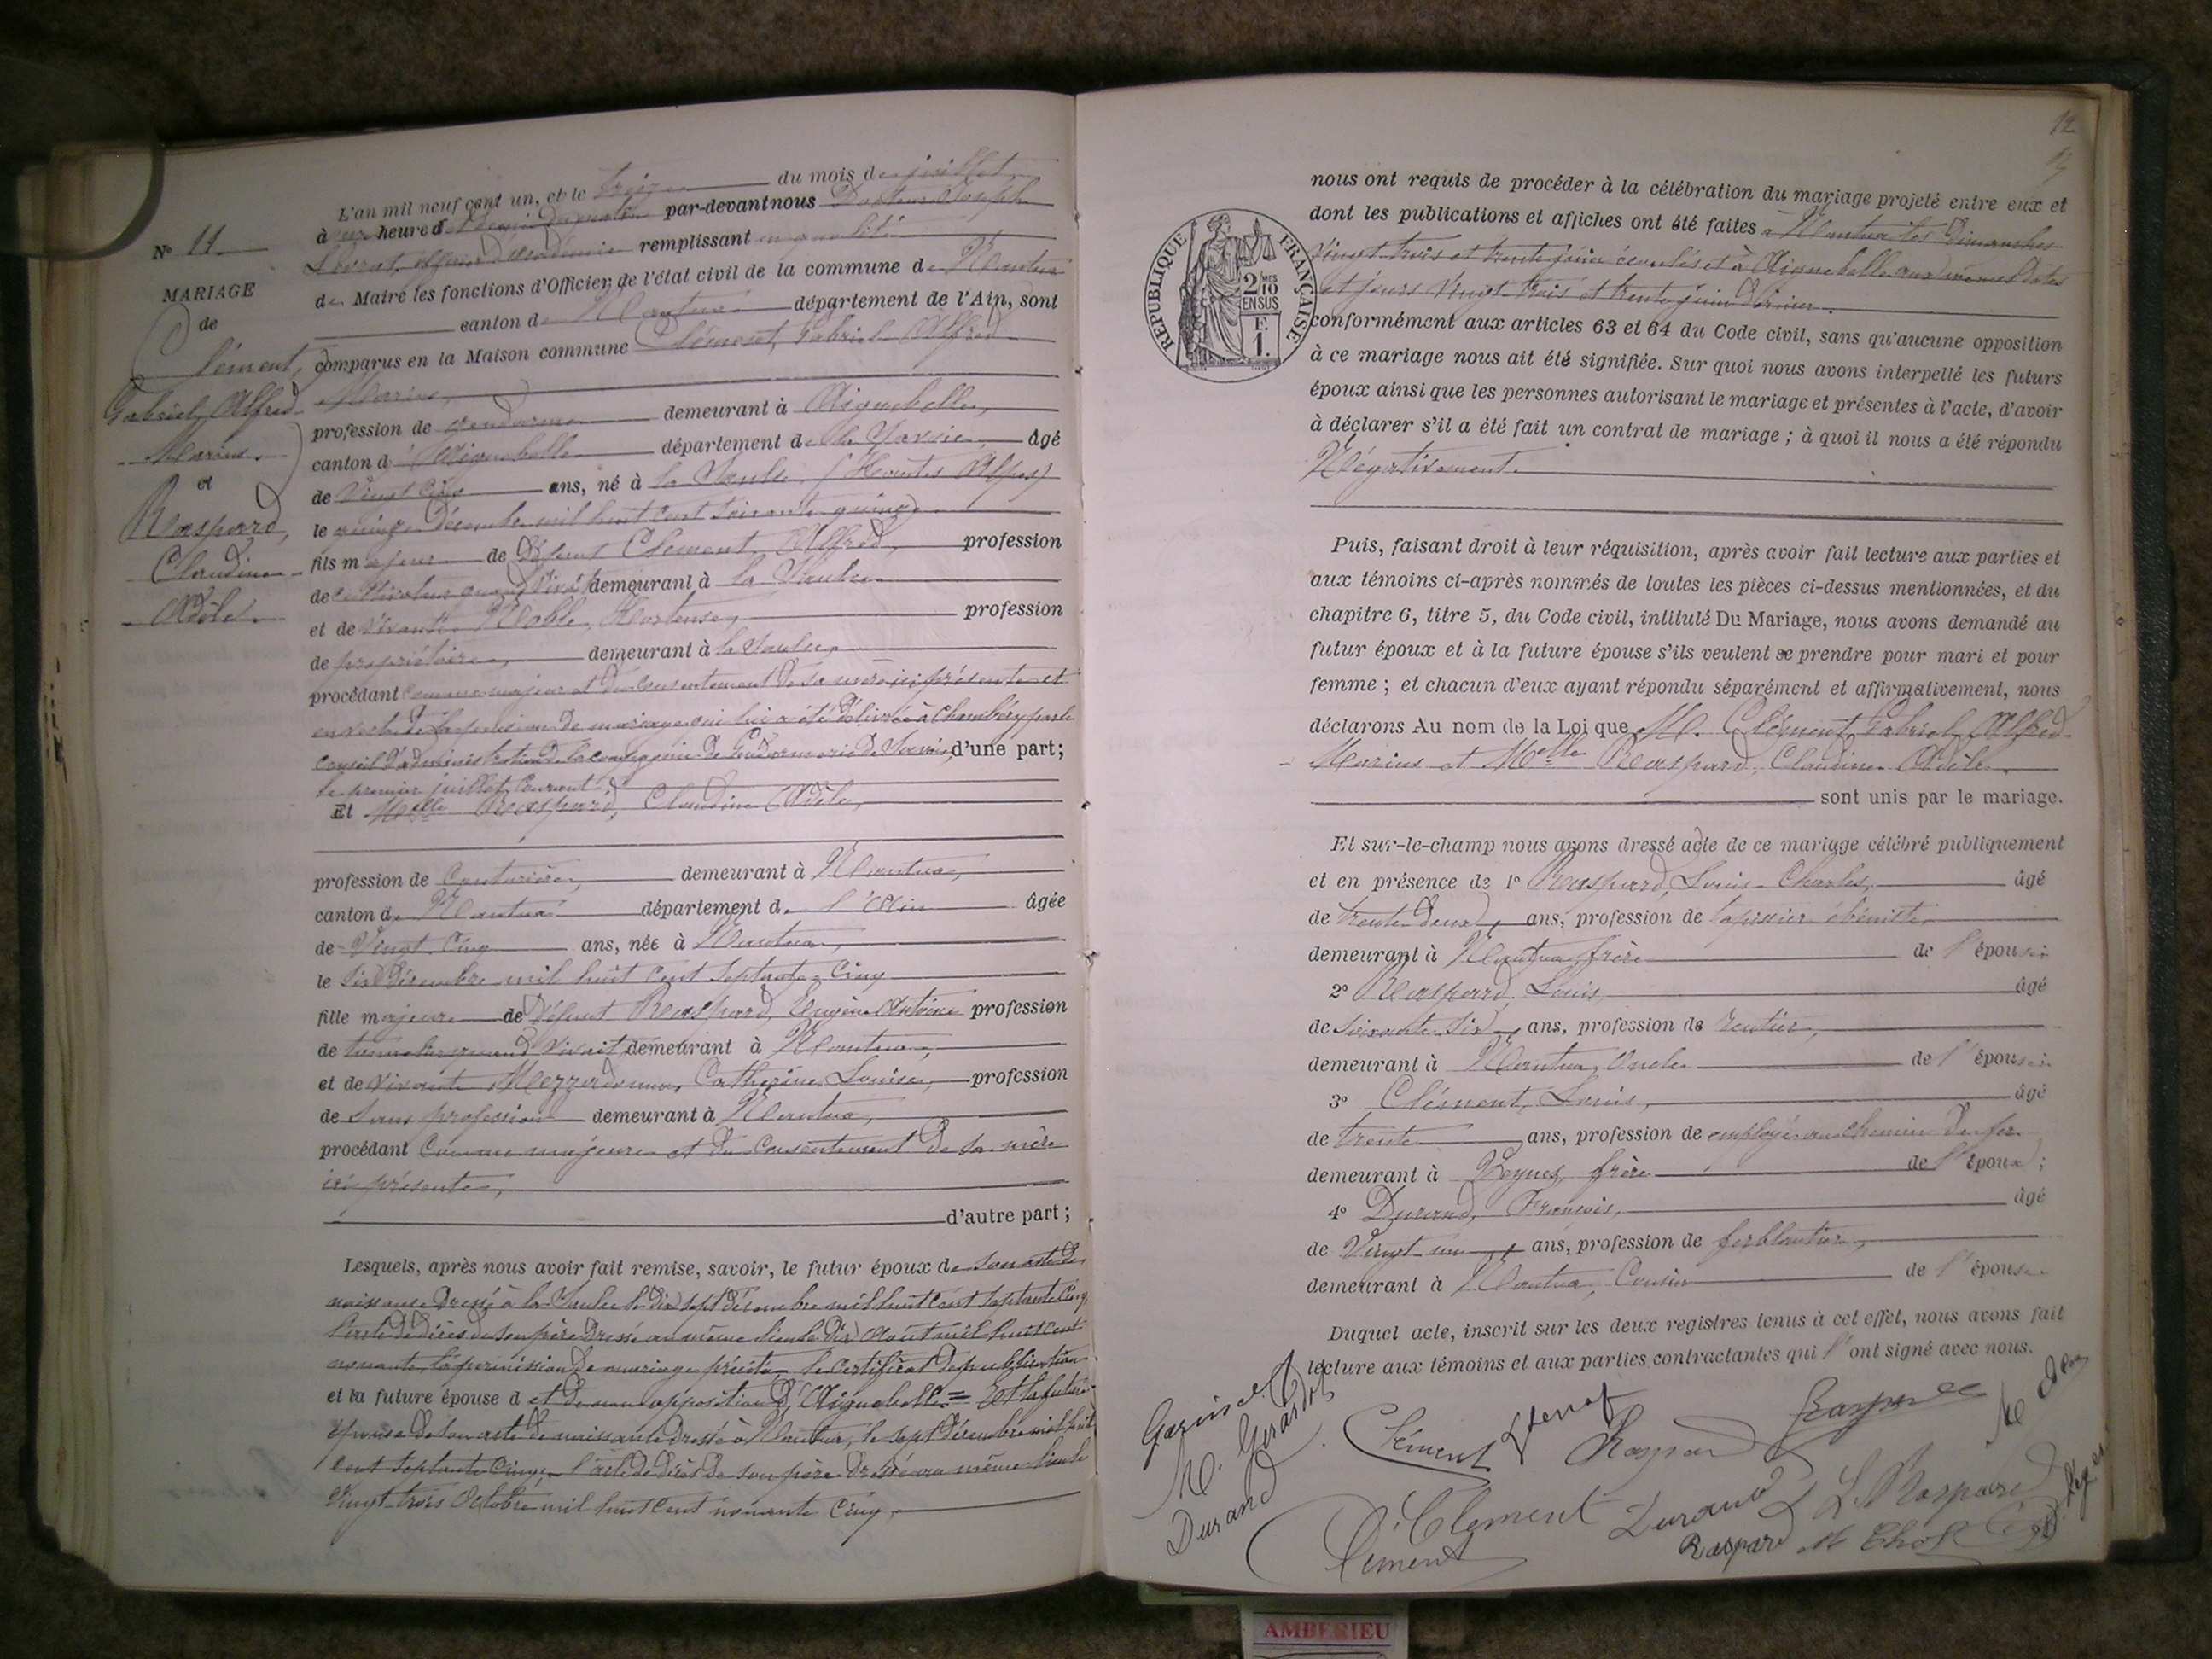 L'an mil neuf cent un, et le treize du mois de juillet
à heures du matin par-devant nous Docteur Joseph
officier d'académie remplissant en qualité
de Maire les fonctions d'Officier de l'état civil de la commune de Nantua
canton de Nantua département de l'Ain, sont
comparus en la Maison commune Clément, Gabriel Alfred
Marius,
profession de gendarme demeurant à Aiguebelle,
canton d'Aiguebelle département de la Savoie, âgé
de vingt cinq ans, né à la Saulce (Hautes Alpes)
le quinze décembre mil huit cent soixante quinze
fils majeur de défunt Clément, Alfred, profession
de cultivateur quand vivait demeurant à la Saulce
et de vivante Noble, Hortense, profession
de propriétaire, demeurant à la Saulce,
procédant comme majeur et du consentement de sa mère ici présente et
en vertu de la permission de mariage qui lui a été délivrée à Chambéry par le
conseil d'administration de la compagnie de Gendarmerie de Savoie, d'une part;
le premier juillet courant
Et Melle Raspard, Claudine Adèle,
profession de Couturière, demeurant à Nantua,
canton de Nantua département de l'Ain âgée
de vingt cinq ans, née à Nantua,
le six décembre mil huit cent septante cinq
fille majeure de défunt Raspard, Eugène Antoine profession
de quand vivait, demeurant à Nantua,
et de vivante Catherine Louise, profession
de sans profession demeurant à Nantua,
procédant comme majeure et du consentement de sa mère
ici présente,
d'autre part;
Lesquels, après nous avoir fait remise, savoir, le futur époux de son acte de
naissance dressé à la Saulce le dix sept décembre mil huit cent septante cinq,
l'acte de décès de son père dressé au même lieu le dix août mil huit cent
nonante, la permission de mariage précitée, le certificat de publication
et la future épouse d et de non opposition d'Aiguebelle = Et la future
épouse de son acte de naissance dressé à Nantua, le sept décembre mil huit
cent septante cinq, l'acte de décès de son père dressé au même lieu le
vingt trois Octobre mil huit cent nonante cinq.
Nº 11.
MARIAGE
de
Clément,
Gabriel, Alfred
Marius.
et
Raspard,
Claudine
Adèle.
12
RÉPUBLIQUE FRANÇAISE
2/10
MES
EN SUS
F.
1.
nous ont requis de procéder à la célébration du mariage projeté entre eux et
dont les publications et affiches ont été faites à Nantua les Dimanches
vingt trois et trente juin écoulés et à Aiguebelle aux mêmes dates
et jours vingt trois et trente juin dernier.
conformément aux articles 63 et 64 du Code civil, sans qu'aucune opposition
à ce mariage nous ait été signifiée. Sur quoi nous avons interpellé les futurs
époux ainsi que les personnes autorisant le mariage et présentes à l'acte, d'avoir
à déclarer s'il a été fait un contrat de mariage ; à quoi il nous a été répondu
Négativement.
Puis, faisant droit à leur réquisition, après avoir fait lecture aux parties et
aux témoins ci-après nommés de toutes les pièces ci-dessus mentionnées, et du
chapitre 6, titre 5, du Code civil, intitulé Du Mariage, nous avons demandé au
futur époux et à la future épouse s'ils veulent se prendre pour mari et pour
femme ; et chacun d'eux ayant répondu séparément et affirmativement, nous
déclarons Au nom de la Loi que M. Clément, Gabriel, Alfred
Marius et Melle Raspard, Claudine Adèle.
sont unis par le mariage.
Et sur-le-champ nous avons dressé acte de ce mariage célébré publiquement
et en présence de 1º Raspard, Louis-Charles, âgé
de trente deux, ans, profession de tapissier ébéniste
demeurant à Nantua, frère de l'épouse
2º Raspard, Louis âgé
de soixante six, ans, profession de rentier,
demeurant à Nantua, oncle de l'épouse
3º Clément, Louis, âgé
de trente ans, profession de employé au chemin de fer
demeurant à Veynes, frère de l'époux;
4º Durand, François, âgé
de vingt un, ans, profession de ferblantier,
demeurant à Nantua, Cousin de l'épouse
Duquel acte, inscrit sur les deux registres tenus à cet effet, nous avons fait
lecture aux témoins et aux parties contractantes qui l'ont signé avec nous.
M. Girardot
Durand
Clément
Raspard
Clément
Durand
L. Raspard
Clément
Raspard
AMBERIEU